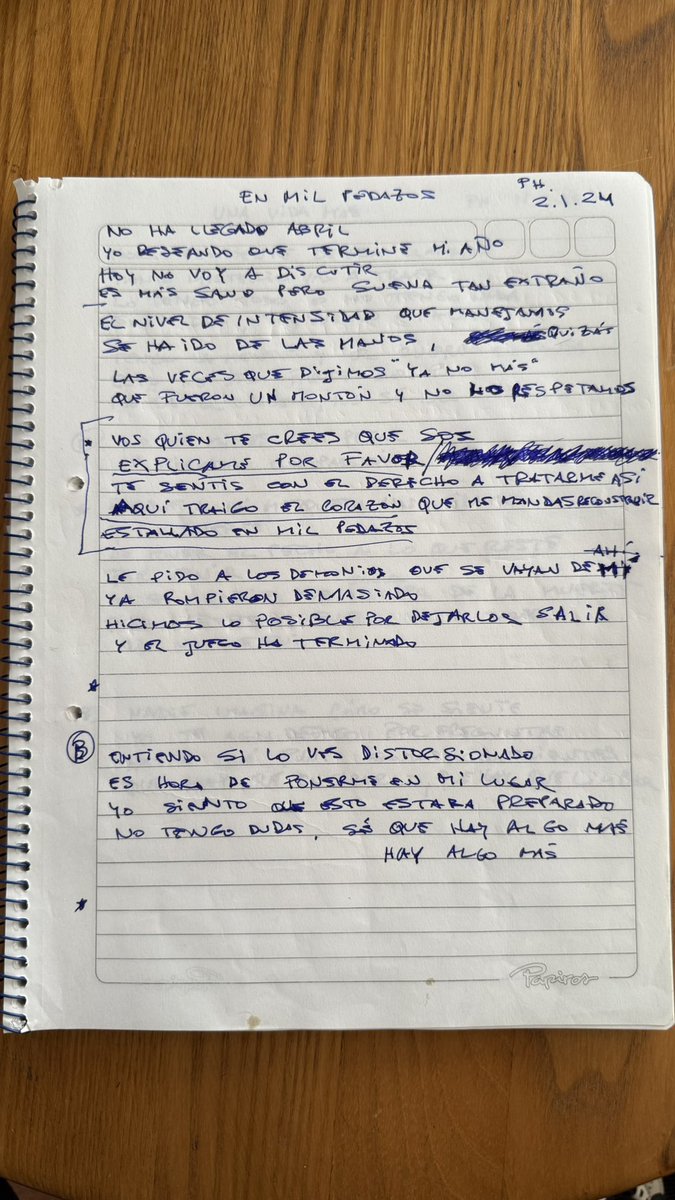 EN MIL PEDAZOS
PH.
2.1.24
NO HA LLEGADO ABRIL
YO DESEANDO QUE TERMINE MI AÑO
HOY NO VOY A DISCUTIR
ES MÁS SANO PERO SUENA TAN EXTRAÑO
EL NIVEL DE INTENSIDAD QUE MANEJAMOS
SE HA IDO DE LAS MANOS, QUIZÁS
LAS VECES QUE DIJIMOS "YA NO MÁS"
QUE FUERON UN MONTÓN Y NO LO RESPETAMOS
* VOS QUIEN TE CREES QUE SOS
EXPLICAME POR FAVOR/
TE SENTIS CON EL DERECHO A TRATARME ASÍ
AQUÍ TRAIGO EL CORAZÓN QUE ME MANDAS RECONSTRUIR
ESTALLADO EN MIL PEDAZOS
LE PIDO A LOS DEMONIOS QUE SE VAYAN DE AHÍ
YA ROMPIERON DEMASIADO
HICIMOS LO POSIBLE POR DEJARLOS SALIR
Y EL JUEGO HA TERMINADO
*
B ENTIENDO SI LO VES DISTORSIONADO
ES HORA DE PONERME EN MI LUGAR
YO SIENTO QUE ESTO ESTARA PREPARADO
NO TENGO DUDAS, SÉ QUE HAY ALGO MAS
HAY ALGO MÁS
*
Papiros